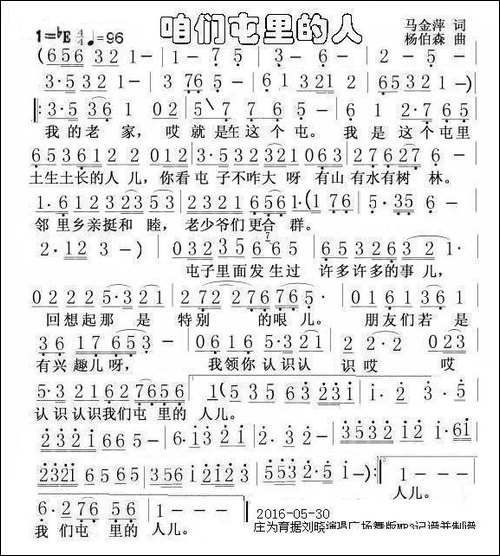 咱们屯里的人
1=♭E 4/4 ♩=96
马金萍 词
杨伯森 曲
(6 5 6 3 2 1 - | 1 - 7 5 | 3 - 6 - | 2 - 5 -
3·5 3 2 1 - | 3 7 6 5 - | 6 1 3 2 1 2 | 6 5 6 1 - ) |
‖: 3·5 3 6 1 0 2 | 5 \ 7 7 6 5 - | 6 1 2·7 6 5 |
我 的 老 家， 哎 就 是 在 这 个 屯。 我 是 这 个 屯 里
6 5 3 6 1 2 2 0 1 2 | 3·5 3 2 3 2 1 0 6 3 | 2 7 6 2 7 6 - |
土生土长的人 儿，你看 屯 子 不咋大 呀 有山 有水有树 林。
1·6 1 2 3 2 3 5 3 | 2 3 2 1 6 5 6 1·( 1 7 6 | 5·3 5 6 - |
邻 里乡亲挺和 睦， 老少爷们更合 群。
2·1 2 3 - ) | 0 3 2 3 5 6 5 | 6 5 3 2 6 3 2 1 · |
屯子里面发生过 许多许多的事 儿，
0 2 2 2 5·3 2 1 | 2 7 2 2 7 6 7 6 5 · | 0 1 6 1 3 6 1 |
回想起那 是 特别 的哏 儿。 朋友们若 是
3 6 1 7 6 5 3 · | 0 6 1 6 5 3 2 1 | 2 2·2 0 2 3 |
有兴 趣儿呀， 我领你认识认 识 哎 哎
5·3 2 1 6 1 6 2 7 6 5 6 | 1 ( 5 3 5 6 3 2 3 | i·2 3·5 |
认 识认识我们屯 里的 人 儿。
2 3 2 i 6 6 5 · | 6·i 6 i 2· 3 2 · | 3 5 3 2 i 2·6 i |
2 3 2 i 5 5 · | i i 2 6 i 2·3 | 5 5 3 2·5 i - ) :‖ 1 - - - |
人儿。
6·2 7 6 5 6 | 1 - - - ‖
我 们屯 里的 人儿。
2016-05-30
庄为育据刘晓演唱广场舞版MP3记谱并制谱